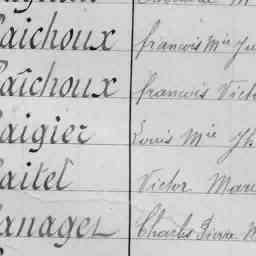 aichoux francois Mie Ju
aîchoux francois Victo
aigier Louis Mie Jh
aitel Victor Mari
anaget Charles Pierre M